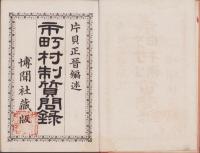 片貝正晉編述
市町村制質問錄
博聞社藏版